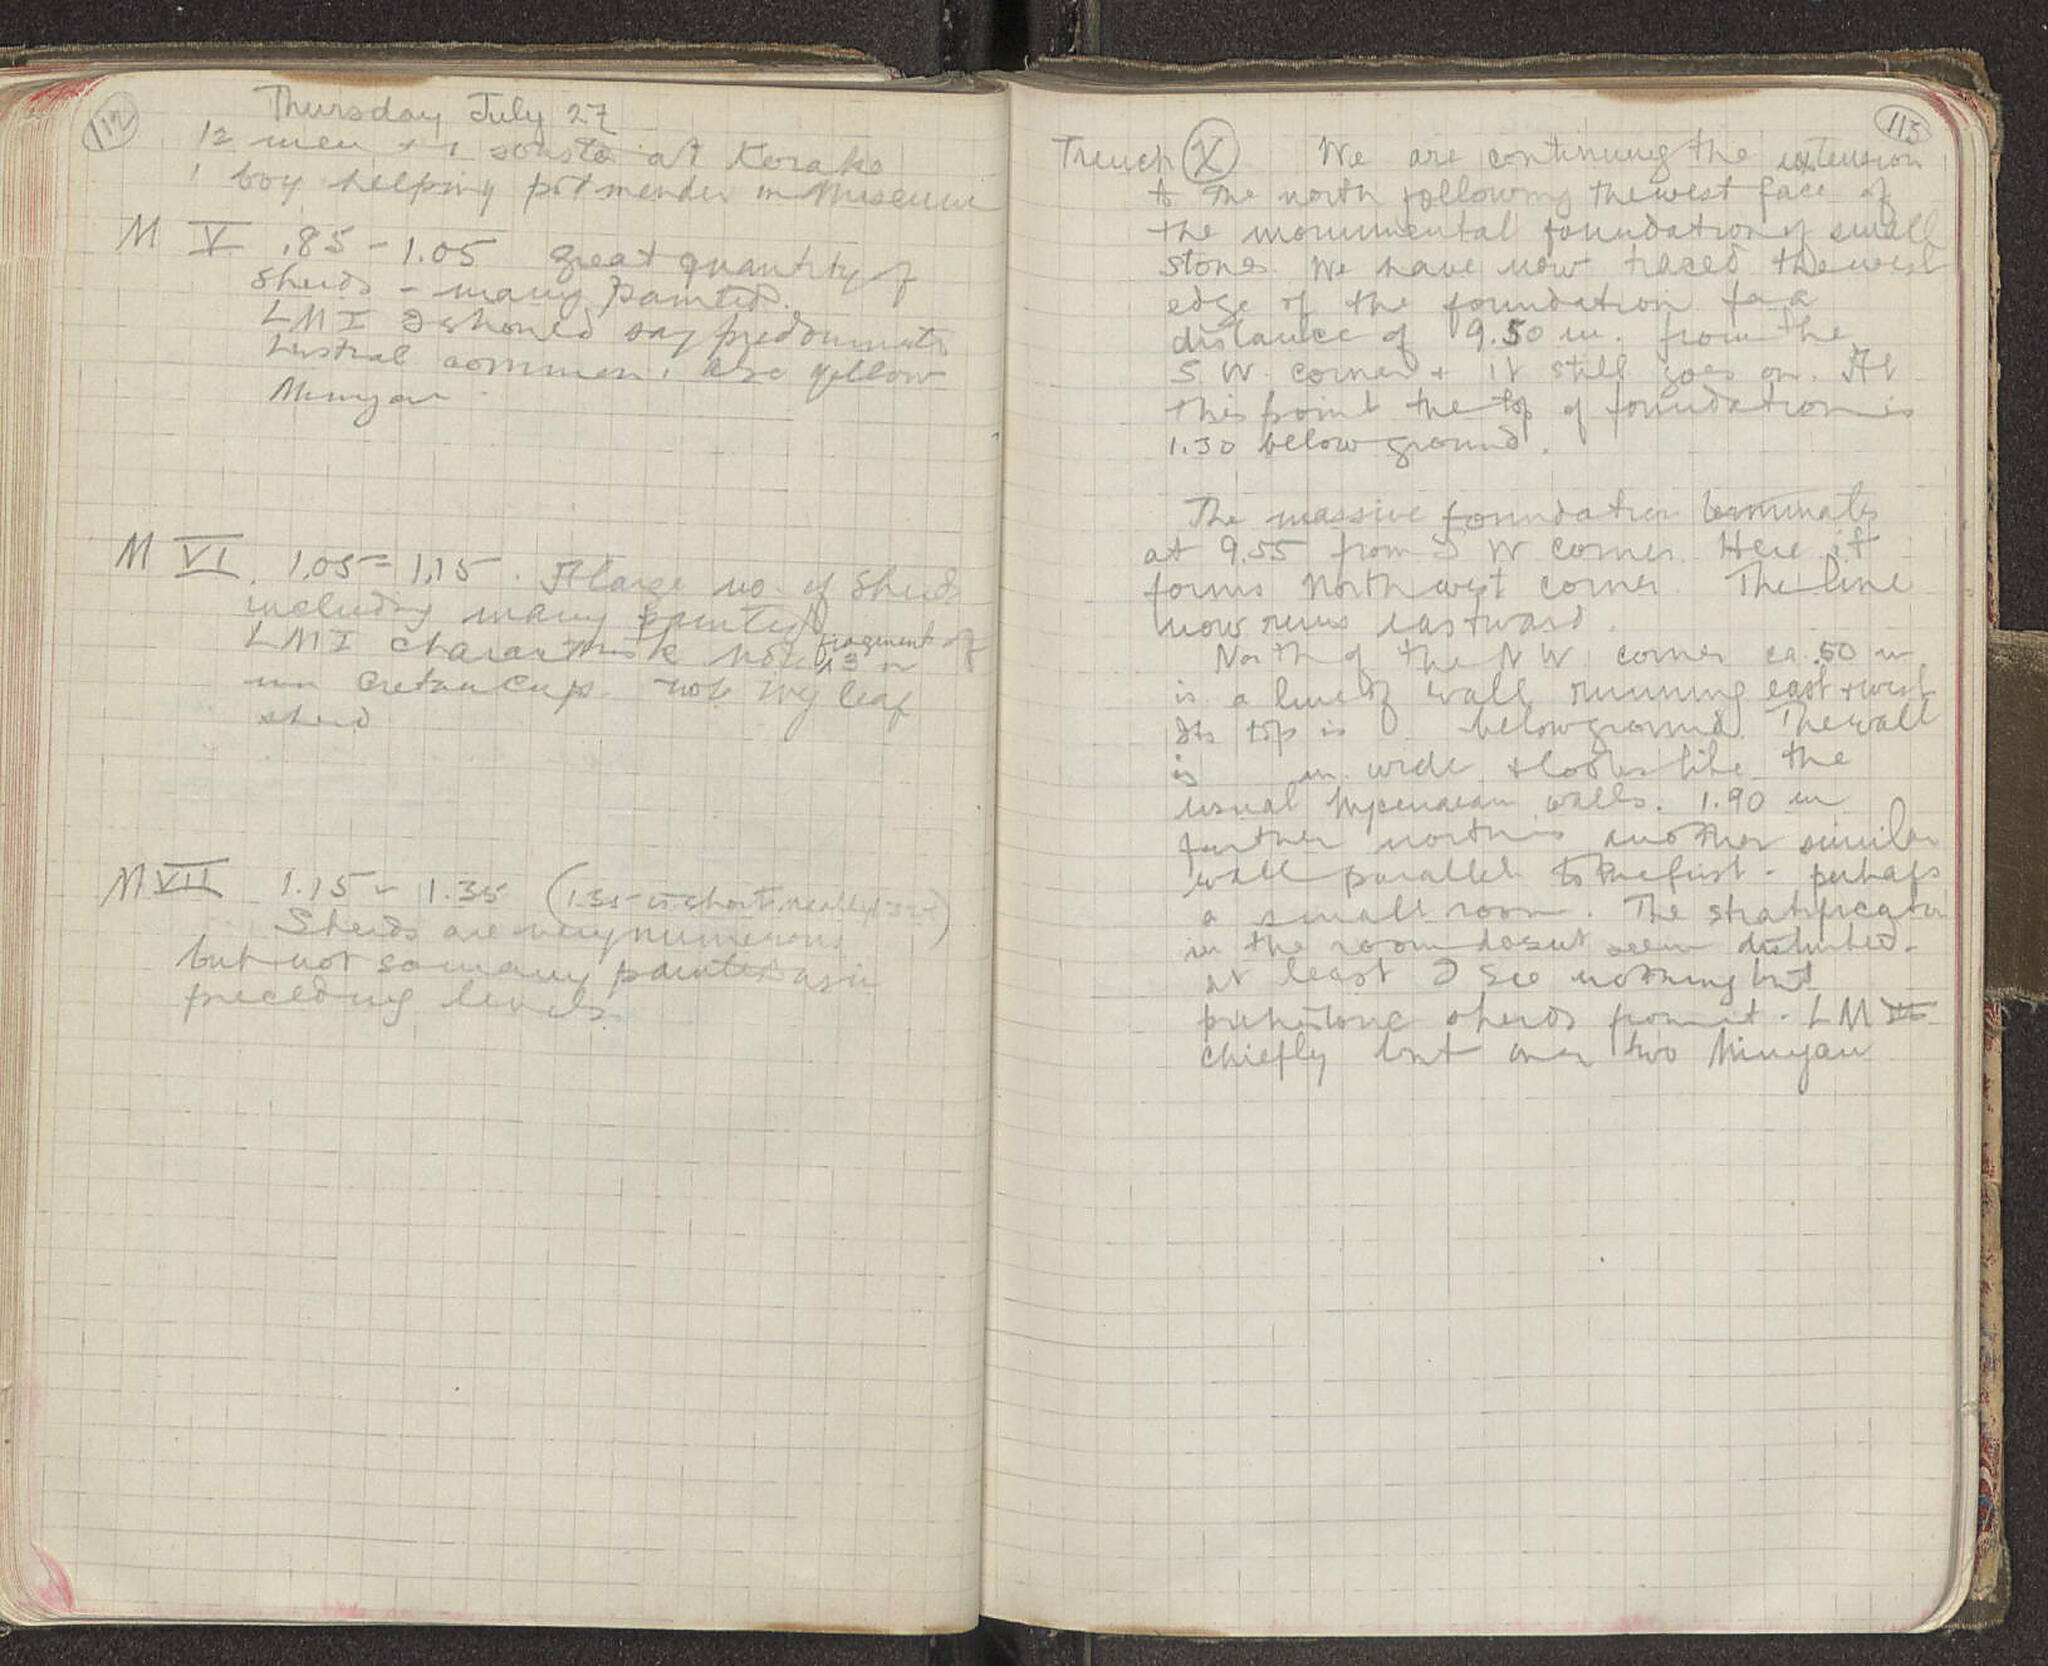 112
Thursday July 27
12 men + 1 sousta at Korako
1 boy helping potmender in Museum
M V .85 - 1.05 great quantity of
sherds - many painted.
LM I I should say predominates
Lustral common, also yellow
Minyan
M VI. 1.05 - 1.15. A large no. of sherds
including many painted
LM I characteristic note fragment of
13 or
un Cretan cups. note ivy leaf
sherd
M VII 1.15 - 1.35 (1.35 is short, really
Sherds are very numerous
but not so many painted as in
preceding levels.
113
Trench X We are continuing the extension
to the north following the west face of
the monumental foundation of small
stones. We have now traced the west
edge of the foundation for a
distance of 9.50 m. from the
S W. corner + it still goes on. At
this point the top of foundation is
1.30 below ground.
The massive foundation terminates
at 9.55 from S W corner. Here it
forms North west corner. The line
now runs eastward.
North of the N W. corner ca .50 m
is a line of wall running east + west
Its top is below ground. The wall
is m. wide + looks like the
usual Mycenaean walls. 1.90 m
further north is another similar
wall parallel to the first - perhaps
a small room. The stratification
in the room doesnt seem disturbed.
at least I see nothing but
prehistoric sherds from it. LM III
chiefly but one or two Minyan